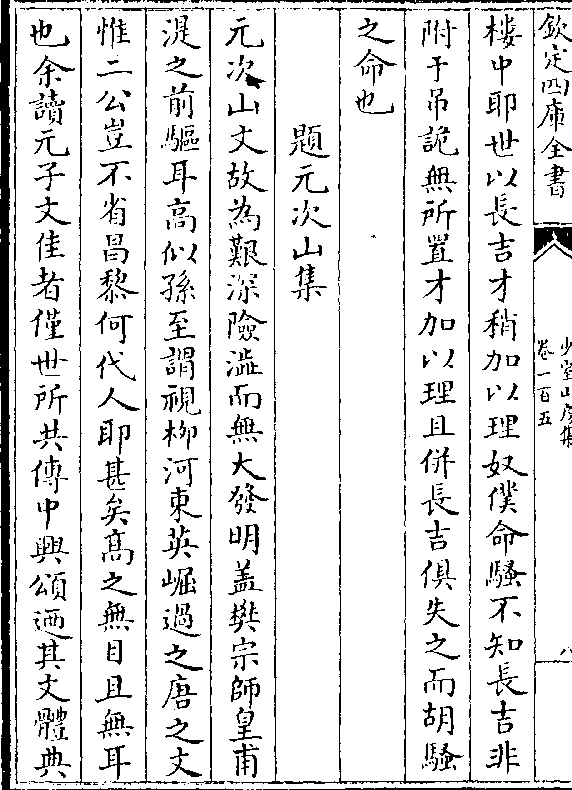 欽定四庫全書
少室山房集
卷一百五
八
樓中耶世以長吉才稍加以理奴僕命騷不知長吉非
附于吊詭無所置才加以理且併長吉俱失之而胡騷
之命也
題元次山集
元次山文故為艱深險澁而無大發明盖樊宗師皇甫
湜之前驅耳高似孫至謂視柳河東英崛過之唐之文
惟二公豈不省昌黎何代人耶甚矣髙之無目且無耳
也余讀元子文佳者僅世所共傳中興頌迺其文體典